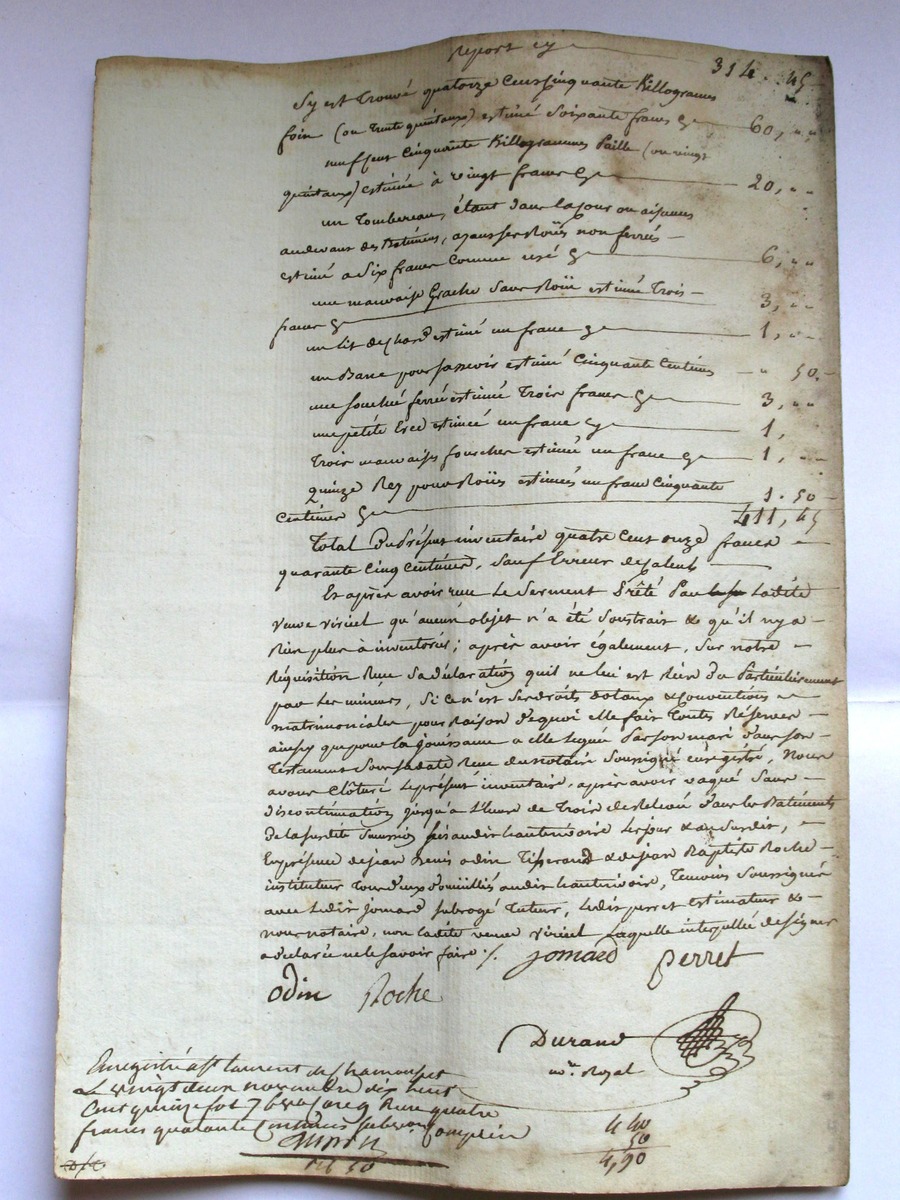 Report cy 314. 45
S'y est trouvé quatorze cens cinquante killogrames
foin (ou trente quintaux) estimé soixante francs cy 60, ""
neuf cent cinquante killogrammes paille (ou vingt
quintaux) estimée à vingt francs cy 20, ""
un tombereau, étant dans la cour ou aisances
au devant des batimens, ayant ses roües non ferrés
estimé a six francs comme usé cy 6, ""
une mauvaise sans roüe estimée trois
francs cy 3, ""
un lit de char estimé un franc cy 1, ""
un banc pour s'asseoir estimé cinquante centimes " 50.
une ferré estimée trois francs cy 3, ""
une petite estimée un franc cy 1,
trois mauvaises fourches estimé un franc cy 1, ""
quinze Rey pour roües estimées un franc cinquante
centimes cy 1. 50
411, 45
Total du présent inventaire quatre cent onze francs
quarante cinq centimes, sauf erreur de calcul
Et après avoir reçu le serment prêté par ladite
veuve viricel qu'aucun objet n'a été soustrait & qu'il n'y a
rien plus à inventorier; après avoir également, sur notre
réquisition reçu sa déclaration qu'il ne lui est rien du particulièrement
par les mineurs, si ce n'est ses droits dotaux & conventions
matrimoniales pour raison de quoi elle fait toutes réserves
ainsy que pour la jouissance a elle leguée par son mari dans son
testament sous sa date reçu du notaire soussigné enregistré, nous
avons clôturé le présent inventaire, après avoir vaqué sans
discontinuation jusqu'à l'heure de trois de relevée dans les batiments
de la susdite succession audit hauterivoire les jour & an susdit,
En présence de jean denis odin tisserand & de jean Baptiste Roche
instituteur tous deux domiciliés audit hauterivoire, temoins soussignés
avec ledit jomard subrogé tuteur, ledit perret estimateur &
nous notaire, non ladite veuve viricel laquelle interpellée de signer
a déclaré ne le savoir faire ./.
jomard perret
odin Roche
Durand
nre. Royal
Enregistré a St laurent de chamousset
le vingt deux novembre dix huit
cent quinze fol 7 Reçu quatre
francs quarante centimes subvon comprise
4 40
50
4,90